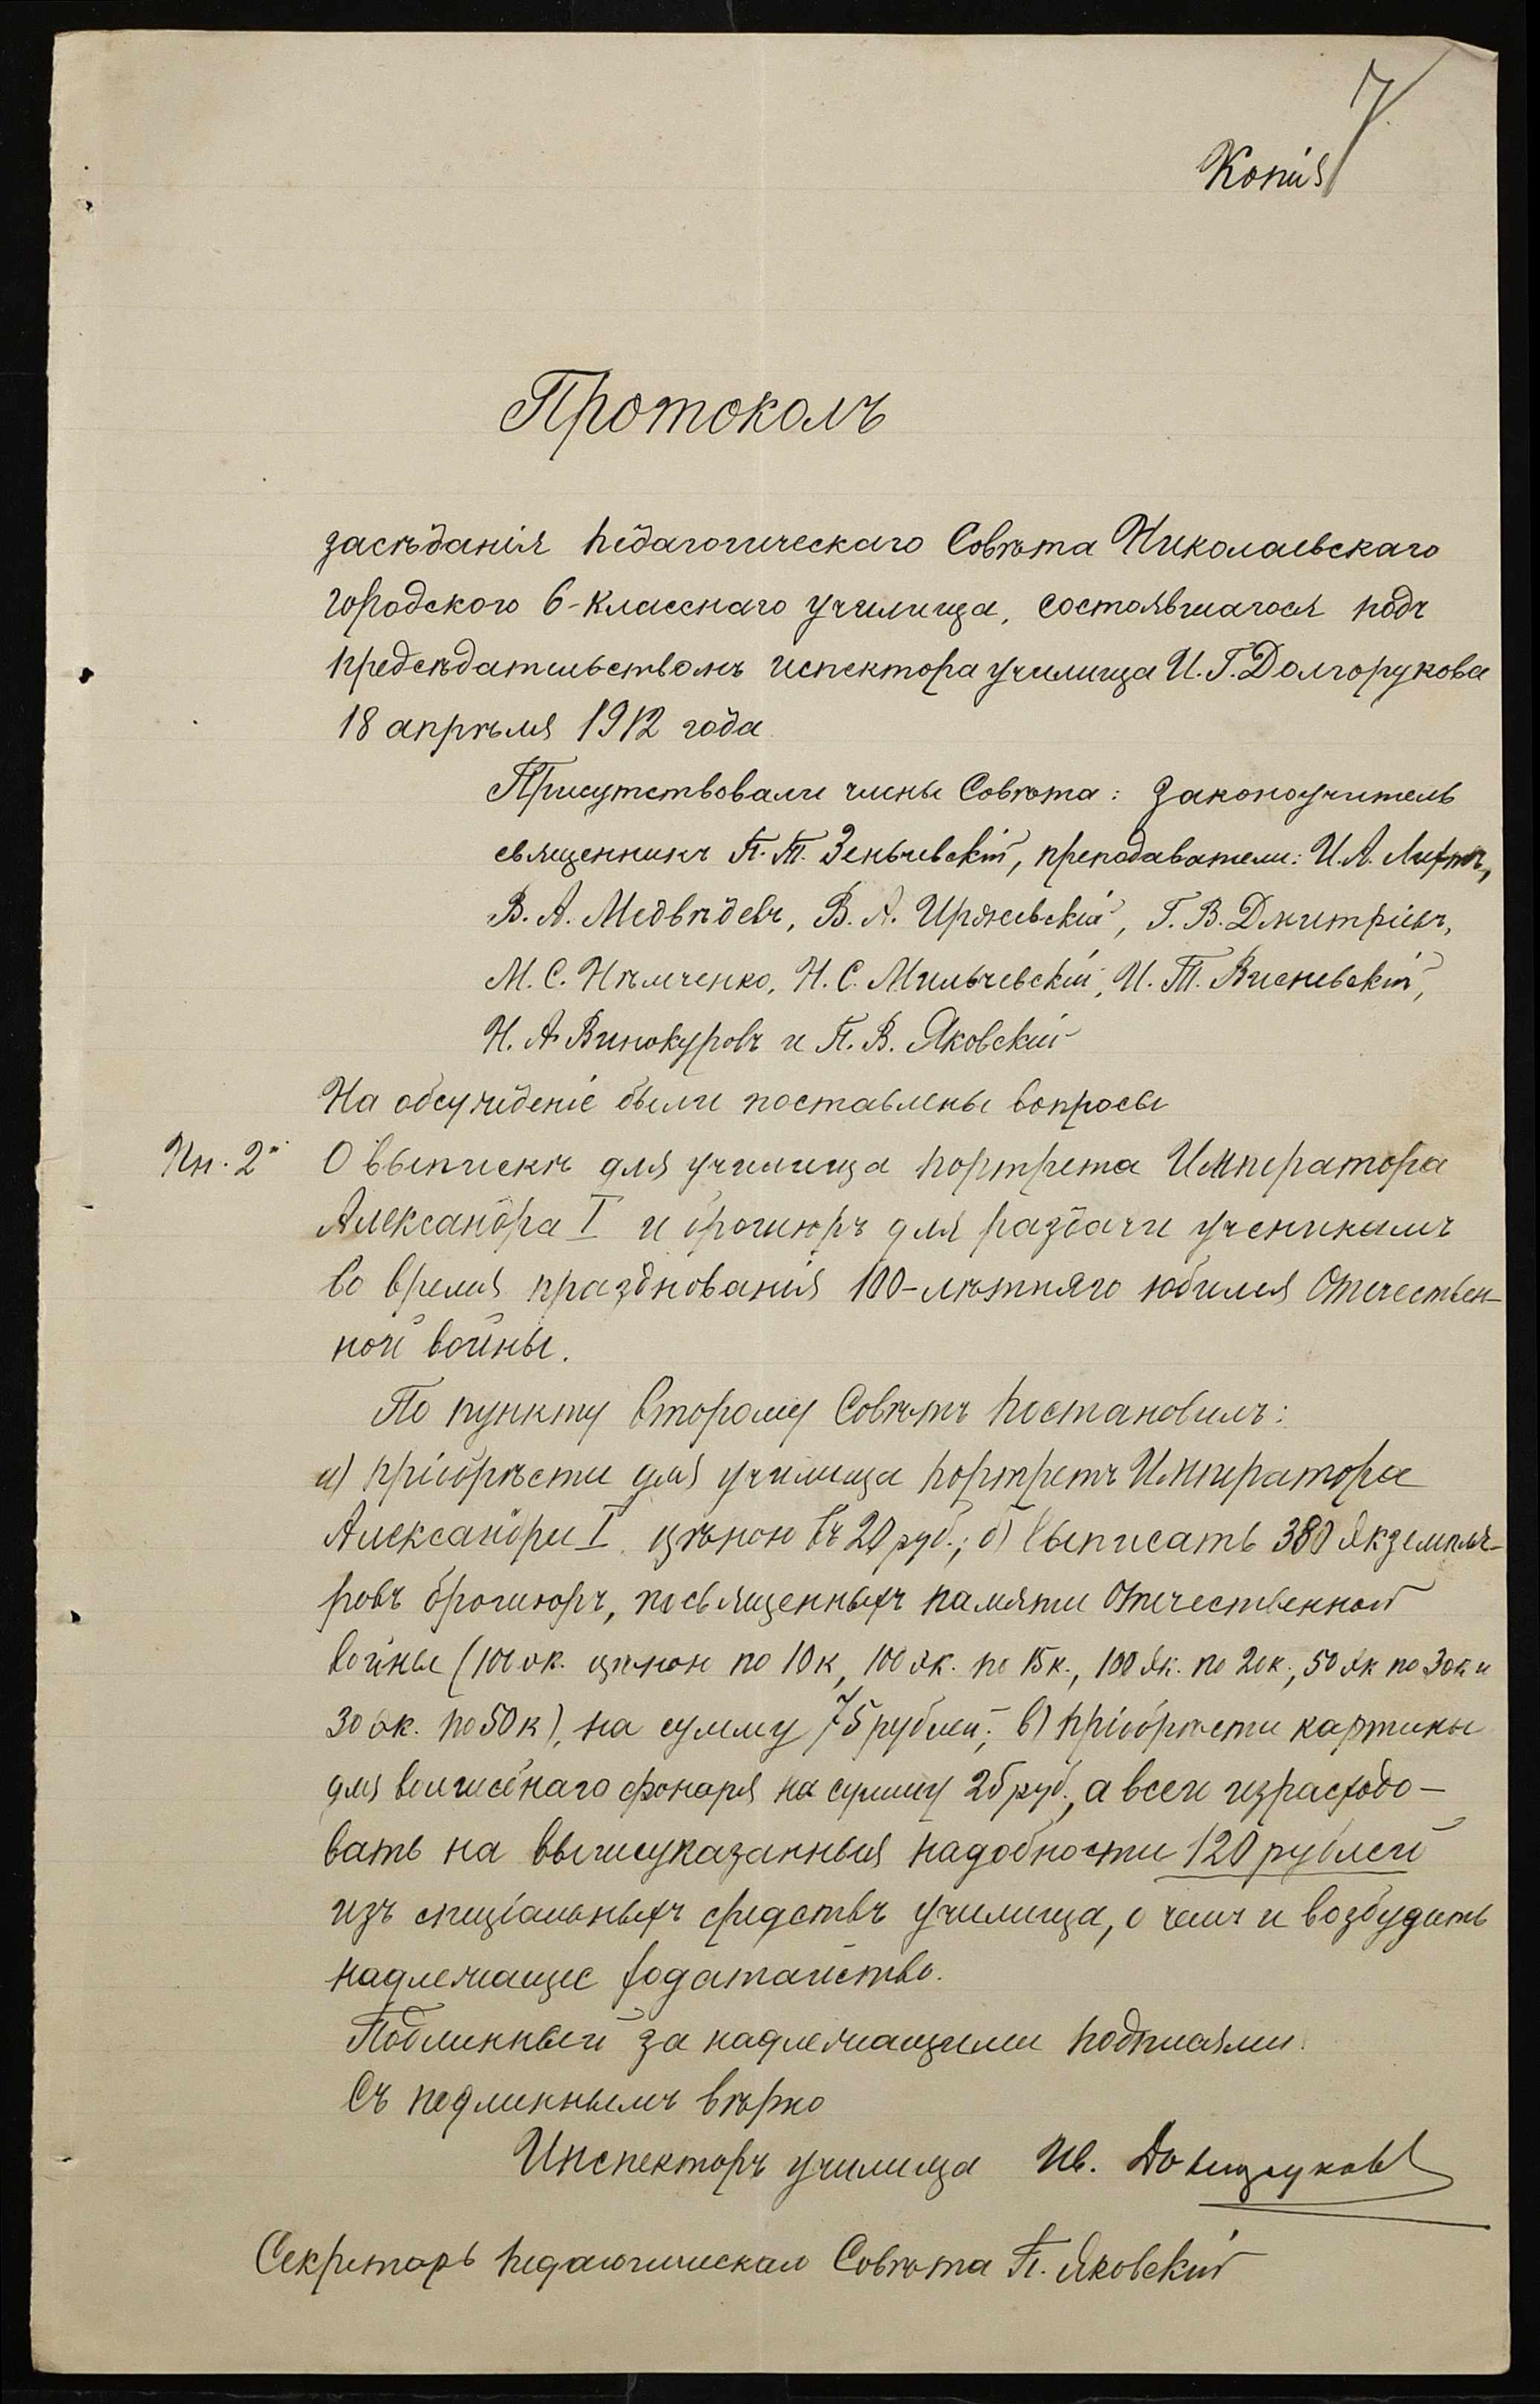 7
Копія
Протоколъ
засѣданія педагогическаго Совѣта Николаевскаго
городского 6-класснаго училища, состоявшагося подъ
предсѣдательствомъ испектора училища И. Г. Долгорукова
18 апрѣля 1912 года
Присутствовали члены Совѣта: Законоучитель
священникъ П. Т. Зеньчевскій, преподаватели: И. А.
В. А. Медвѣдевъ, В. А. Иржевскій, Г. В. Дмитріевъ,
М. С. Нѣмченко, Н. С. Мильчевскій, И. Т. Висневскій,
Н. А. Винокуровъ и П. В. Яковскій
На обсужденіе были поставлены вопросы
Пн. 2й О выпискѣ для училища портрета Императора
Александра I и брошюръ для раздачи ученикамъ
во время празднованія 100-лѣтняго юбилея Отечествен-
ной войны.
По пункту второму Совѣтъ постановилъ:
а) пріобрѣсти для училища портретъ Императора
Александра I цѣною въ 20 руб.; б) выписать 380 экземпля-
ровъ брошюръ, посвященныхъ памяти Отечественной
войны (100 эк. цѣною по 10 к, 100 эк. по 15 к., 100 эк. по 20 к., 50 эк по 30 к и
30 эк. по 50 к), на сумму 75 рублей; в) пріобрѣсти картины
для волшебнаго фонаря на сумму 25 руб., а всего израсходо-
вать на вышеуказанныя надобности 120 рублей
изъ спеціальныхъ средствъ училища, о чемъ и возбудить
надлежащее ходатайство.
Подлинный за надлежащими подписями.
Съ подлиннымъ вѣрно
Инспекторъ училища Ив. Долгоруковъ
Секретарь педагогическаго Совѣта П. Яковскій